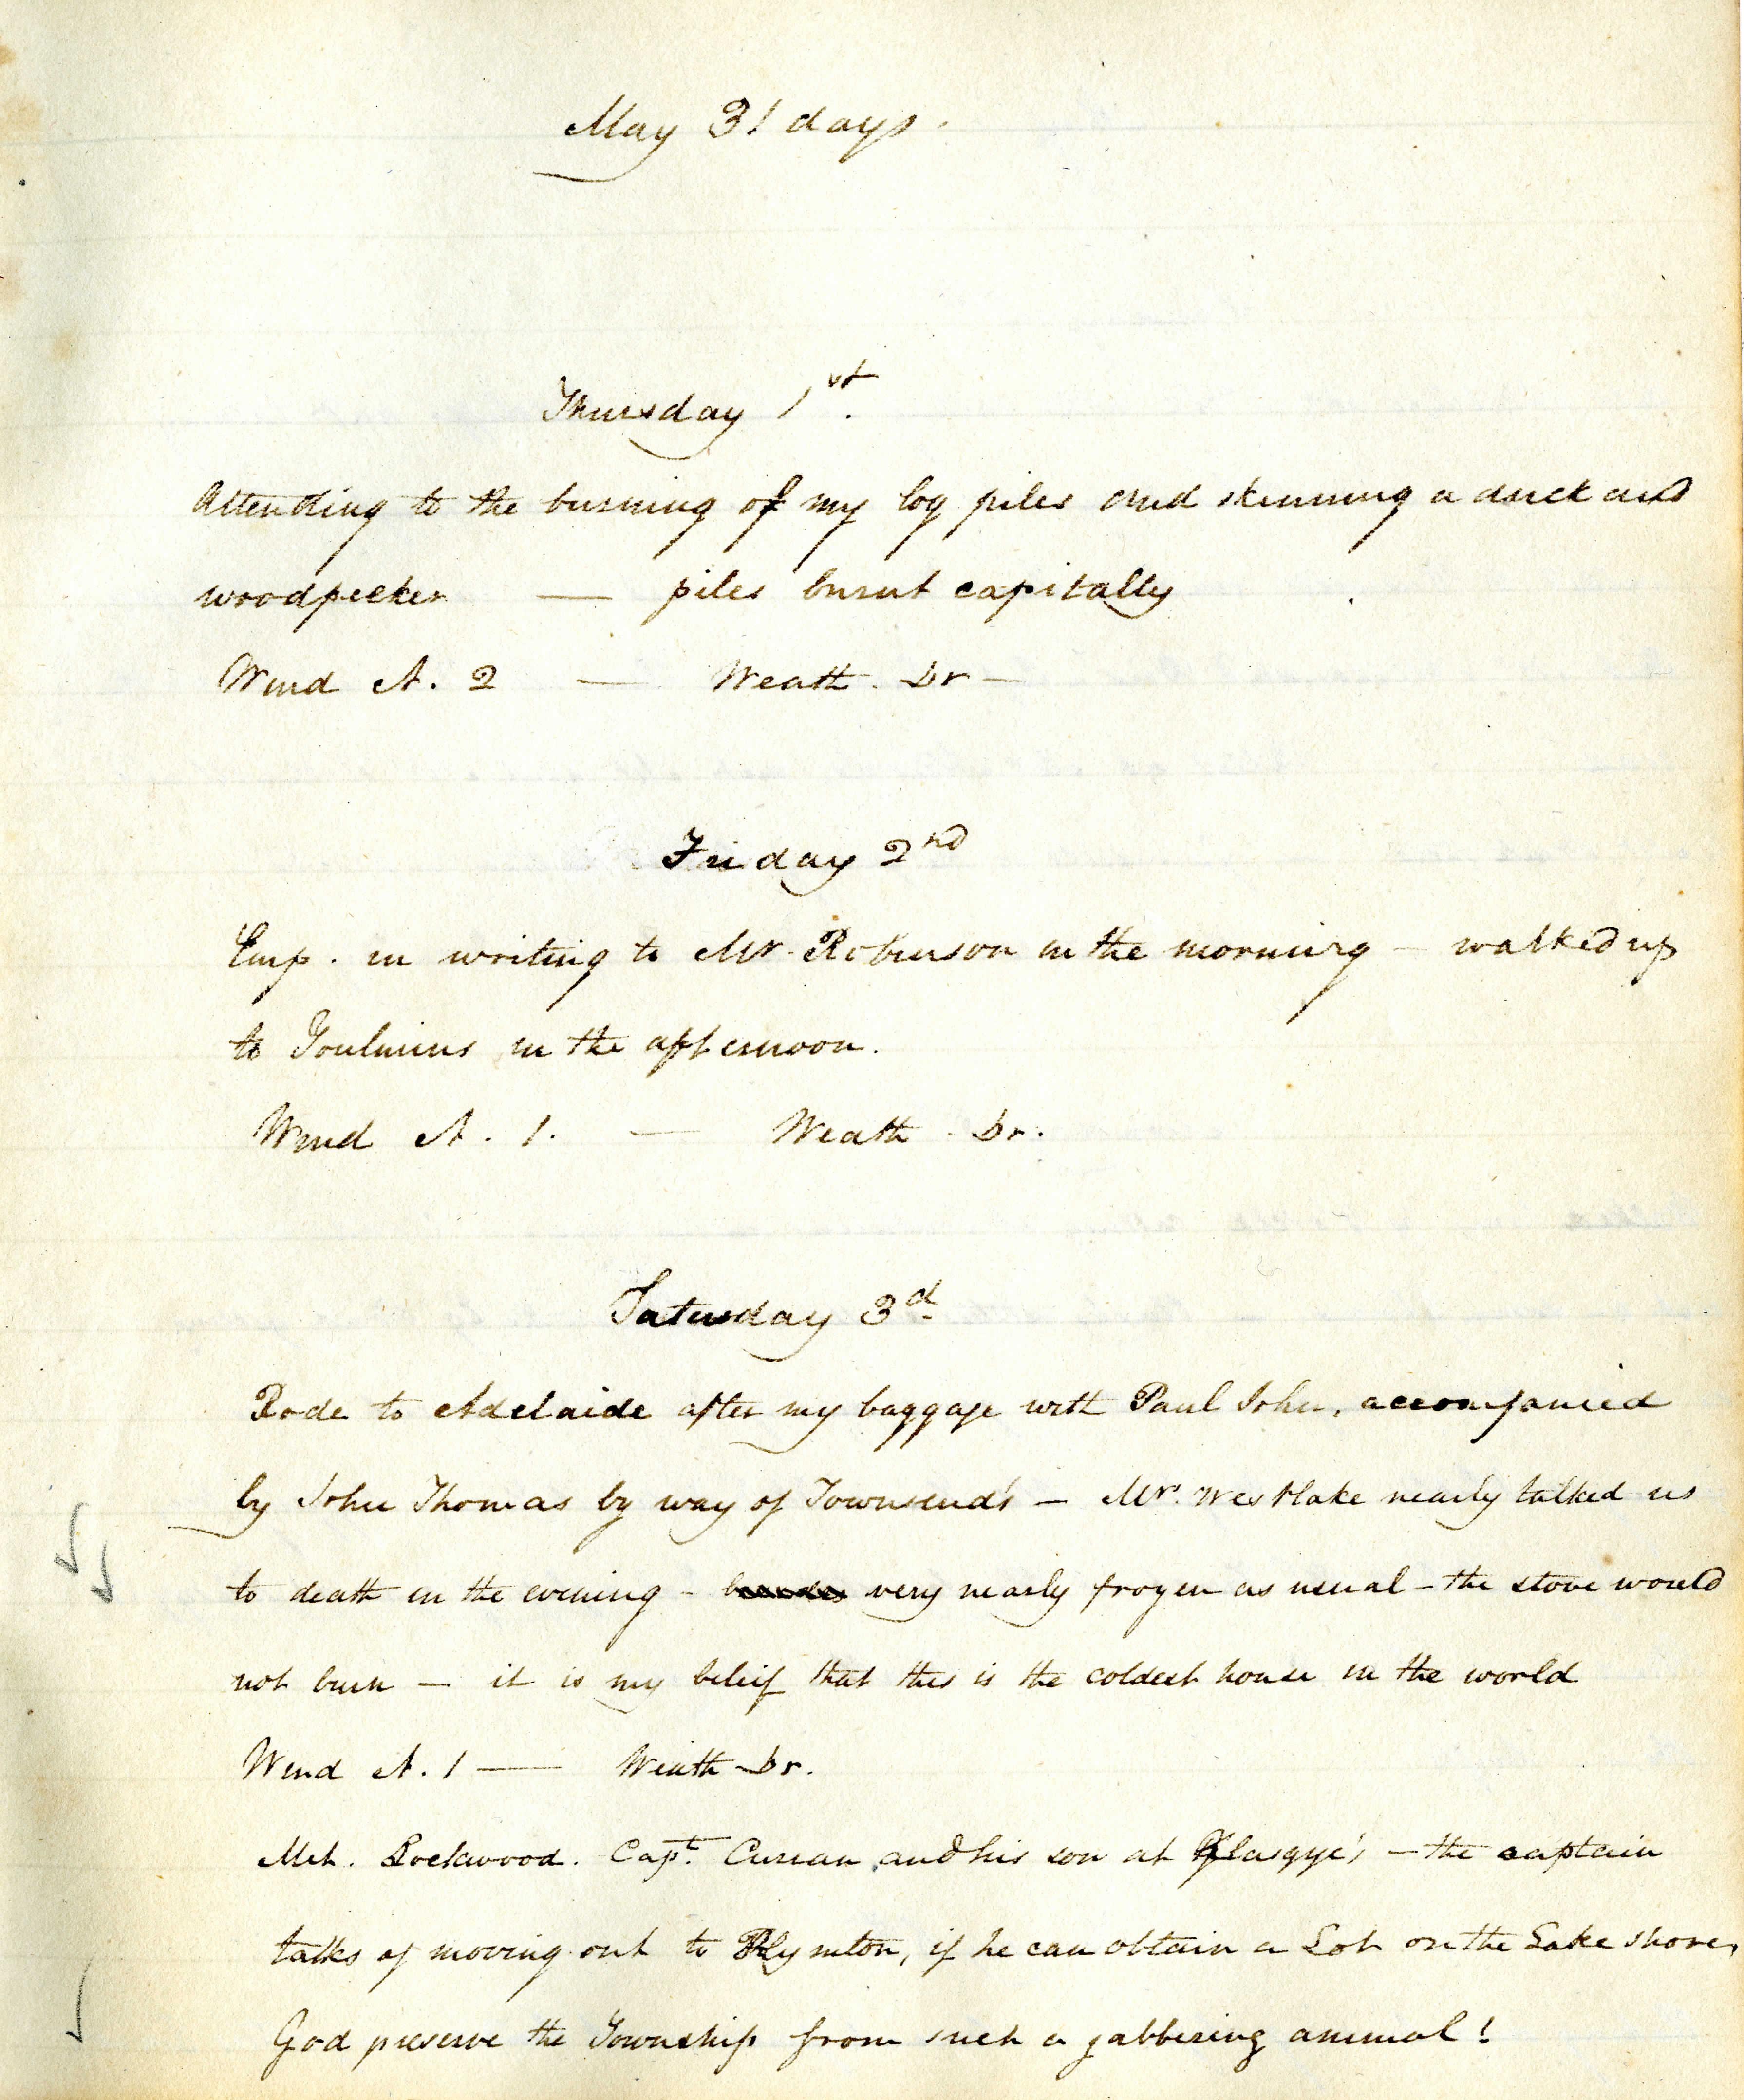 May 31 days.
Thursday 1st.
Attending to the burning of my log piles and skinning a duck and
woodpecker — piles burnt capitally
Wind N. 2 — Weath. br —
Friday 2nd
Emp. in writing to Mr. Robinson in the morning — walked up
to Toulmins in the afternoon.
Wind N. 1. — Weath. br.
Saturday 3d
Rode to Adelaide after my baggage with Paul John, accompanied
by John Thomas by way of Townsend's — Mr. Westlake nearly talked us
to death in the evening — very nearly frozen as usual — the stove would
not burn — it is my beleif that this is the coldest house in the world
Wind N. 1 — Weath br.
Met. Rockwood. Capt. Curran and his son at — the captain
talks of moving out to Plymton, if he can obtain a Lot on the Lake shore,
God preserve the Township from such a jabbering animal!